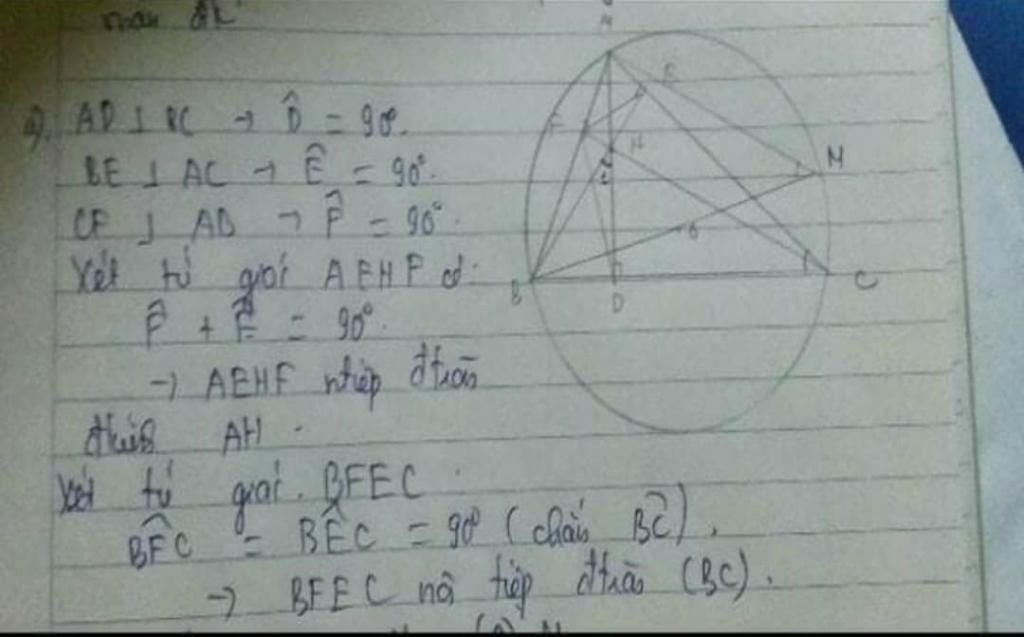 a). AD ⊥ BC → D̂ = 90°.
BE ⊥ AC → Ê = 90°.
CF ⊥ AB → F̂ = 90°.
Xét tứ giác AEHF có:
F̂ + Ê = 90°.
→ AEHF ntiếp đtròn
đkính AH.
Xét tứ giác. BFEC.
BFC = BEC = 90° (chắn BC).
→ BFEC nội tiếp đtròn (BC).
A
E
F
H
M
O
B
D
C